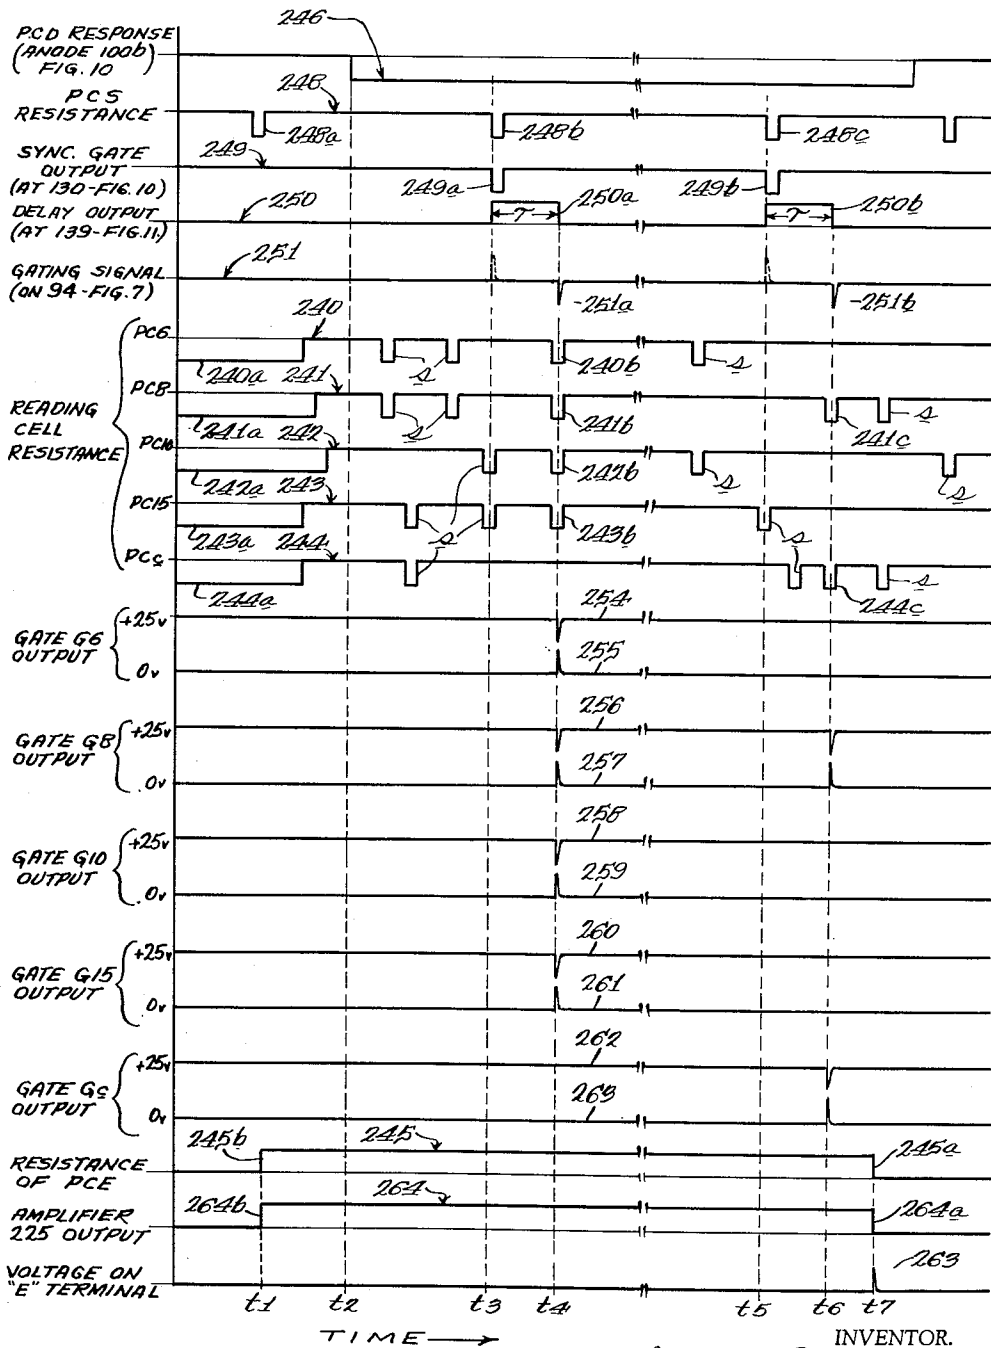 PCD RESPONSE
(ANODE 100b)
FIG. 10
246
PCS
RESISTANCE
248
248a
248b
248c
SYNC. GATE
OUTPUT
(AT 130-FIG.10)
249
249a
249b
DELAY OUTPUT
(AT 139-FIG.11)
250
τ
250a
τ
250b
GATING SIGNAL
(ON 94-FIG.7)
251
251a
251b
READING
CELL
RESISTANCE
PC6
240
240a
s
240b
s
PC8
241
241a
s
241b
241c
s
PC10
242
242a
242b
s
s
PC15
243
243a
s
243b
s
PCc
244
244a
244c
s
GATE G6
OUTPUT
+25v
0v
254
255
GATE G8
OUTPUT
+25v
0v
256
257
GATE G10
OUTPUT
+25v
0v
258
259
GATE G15
OUTPUT
+25v
0v
260
261
GATE Gc
OUTPUT
+25v
0v
262
263
RESISTANCE
OF PCE
245b
245
245a
AMPLIFIER
225 OUTPUT
264b
264
264a
VOLTAGE ON
"E" TERMINAL
263
t1 t2 t3 t4 t5 t6 t7
TIME
INVENTOR.